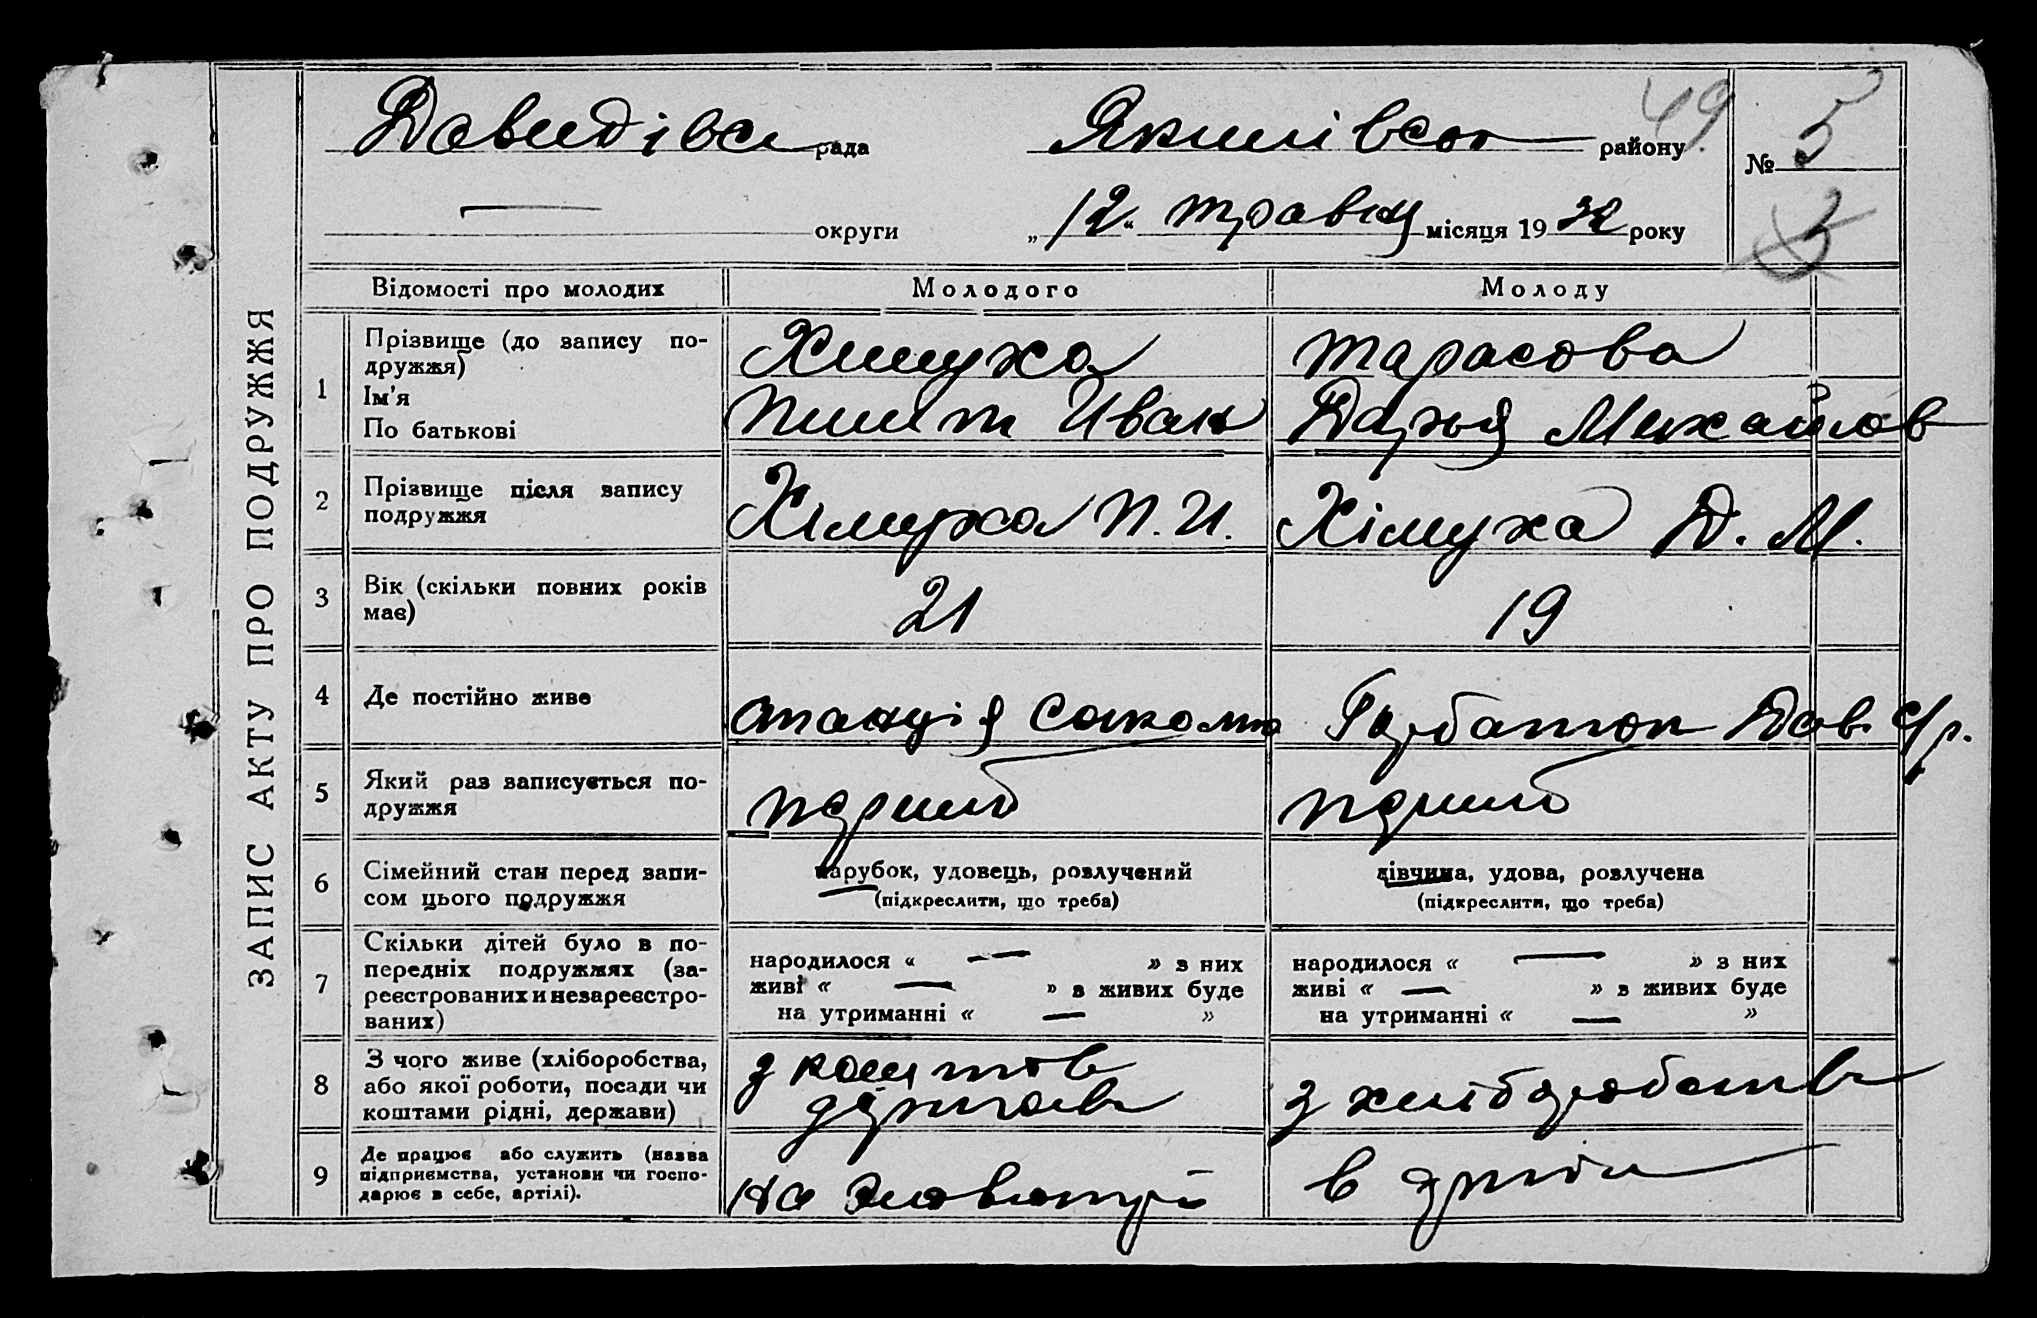 ЗАПИС АКТУ ПРО ПОДРУЖЖЯ
49
Давидівс рада Якимівсог району № 5
округи „12“ травня місяця 19 32 року
Відомості про молодих Молодого Молоду
1 Прізвище (до запису по-
дружжя) Химуха Тарасова
Ім'я
По батькові Пилип Иван Дарья Михайлов
2 Прізвище після запису
подружжя Хімуха П. И. Хімуха Д. М.
3 Вік (скільки повних років
має) 21 19
4 Де постійно живе станція Сокол Дав. с/р.
5 Який раз записується по-
дружжя перший перший
6 Сімейний стан перед запи-
сом цього подружжя парубок, удовець, розлучений дівчина, удова, розлучена
(підкреслити, що треба) (підкреслити, що треба)
7 Скільки дітей було в по-
передніх подружжях (за-
реєстрованих и незареєстро-
ваних) народилося « — » з них народилося « — » з них
живі « — » в живих буде живі « — » в живих буде
на утриманні « — » на утриманні « — »
8 З чого живе (хліборобства,
або якої роботи, посади чи
коштами рідні, держави) з коштів
держав з хліборобств
9 Де працює або служить (назва
підприємства, установи чи госпо-
дарює в себе, артілі). на в артіли